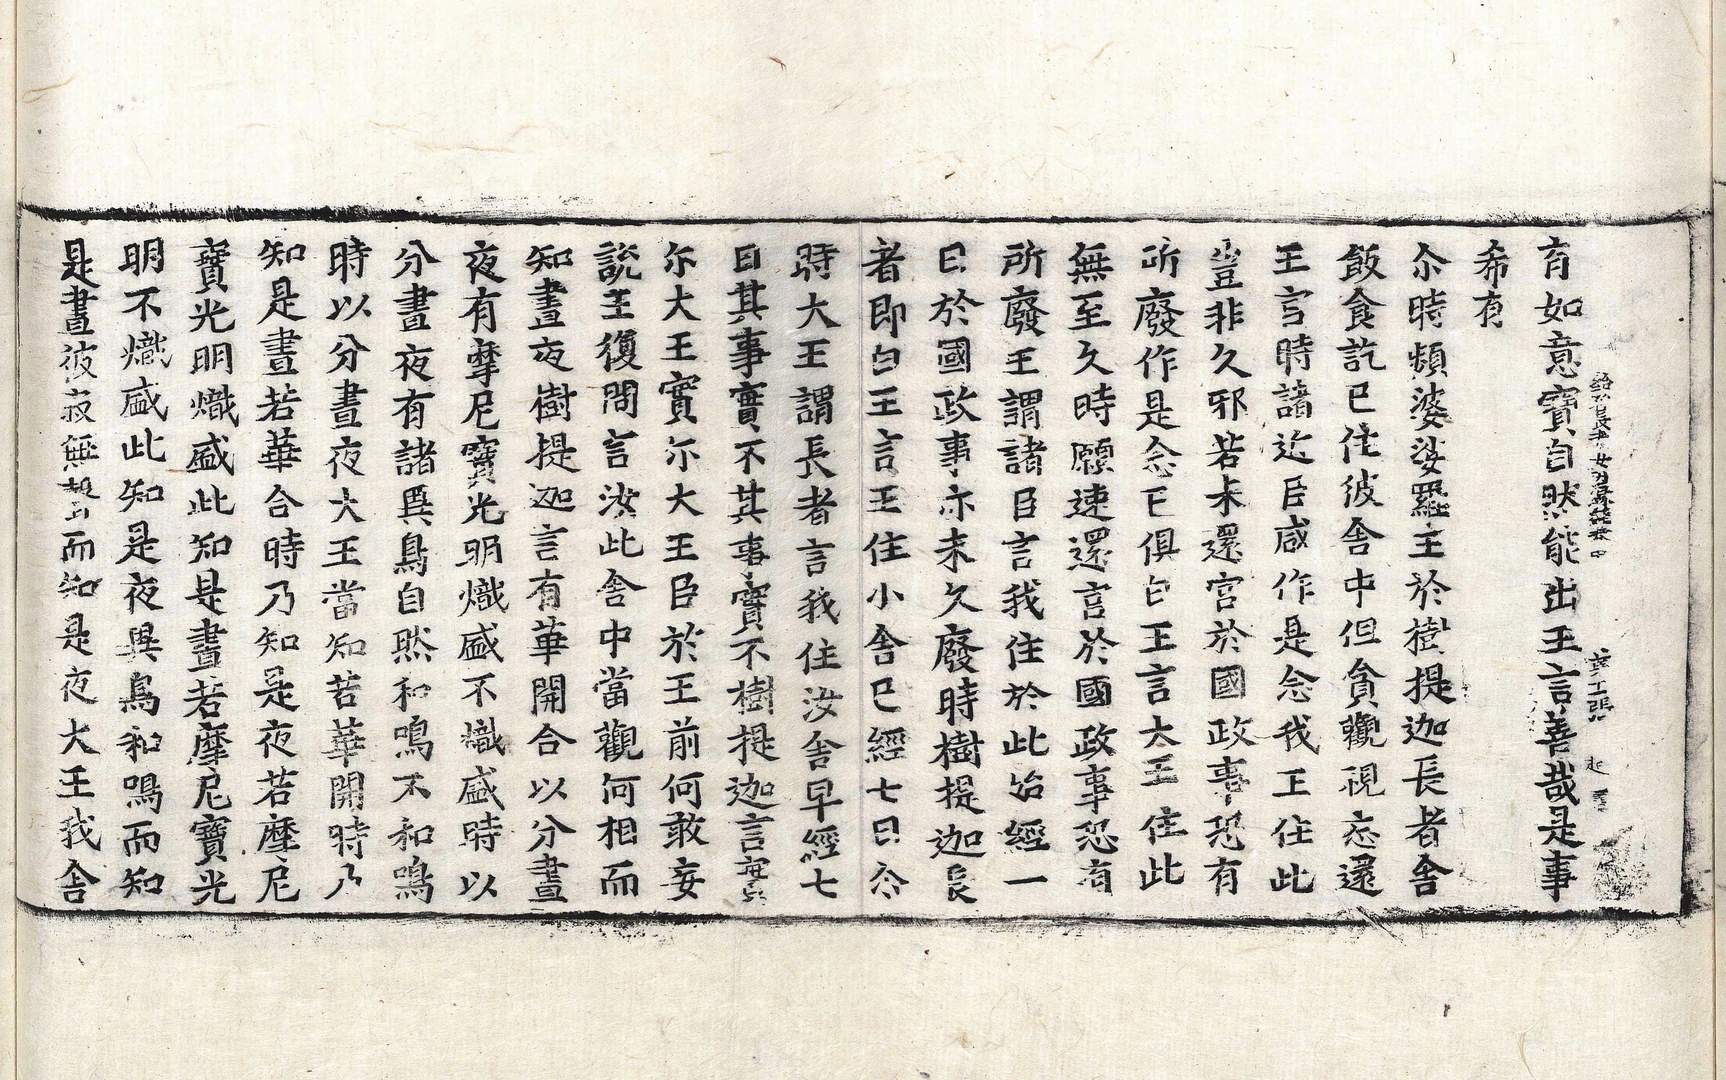 有如意寶自然能出王言善哉是事
希有
尒時頻婆娑羅王於樹提迦長者舍
飯食訖已住彼舍中但貪觀視忘還
王宮時諸近臣咸作是念我王住此
豈非久邪若未還宮於國政事恐有
所廢作是念已俱白王言大王住此
無至久時願速還宮於國政事恐有
所廢王謂諸臣言我住於此始經一
日於國政事亦未久廢時樹提迦長
者即白王言王住小舍已經七日尒
時大王謂長者言我住汝舍早經七
日其事實不其事實不樹提迦言實
尒大王實尒大王臣於王前何敢妄
說王復問言汝此舍中當觀何相而
知晝夜樹提迦言有華開合以分晝
夜有摩尼寶光明熾盛不熾盛時以
分晝夜有諸異鳥自然和鳴不和鳴
時以分晝夜大王當知若華開時乃
知是晝若華合時乃知是夜若摩尼
寶光明熾盛此知是晝若摩尼寶光
明不熾盛此知是夜異鳥和鳴而知
是晝彼寂無聲而知是夜大王我舍